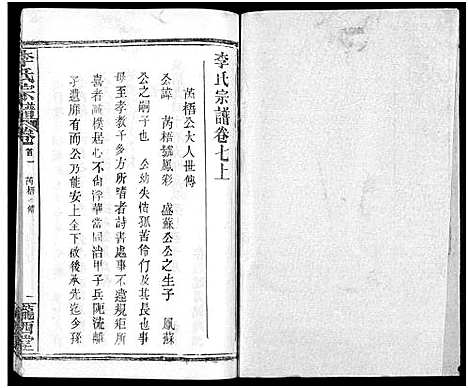 李氏宗譜卷七上
芮梧公大人世傳
公諱 芮梧號鳳彩 盛蘇公公之生子 鳳蘇
公之嗣子也 公幼失怙孤苦伶仃及其長也事
母至孝教子多方所嗜者詩書處事不違規矩所
喜者誠樸居心不尚浮華當同治甲子兵阨流離
孑遺靡有而公乃能安上全下啟後承先迄今孫
李氏宗譜 卷
首一 芮梧 傳
一